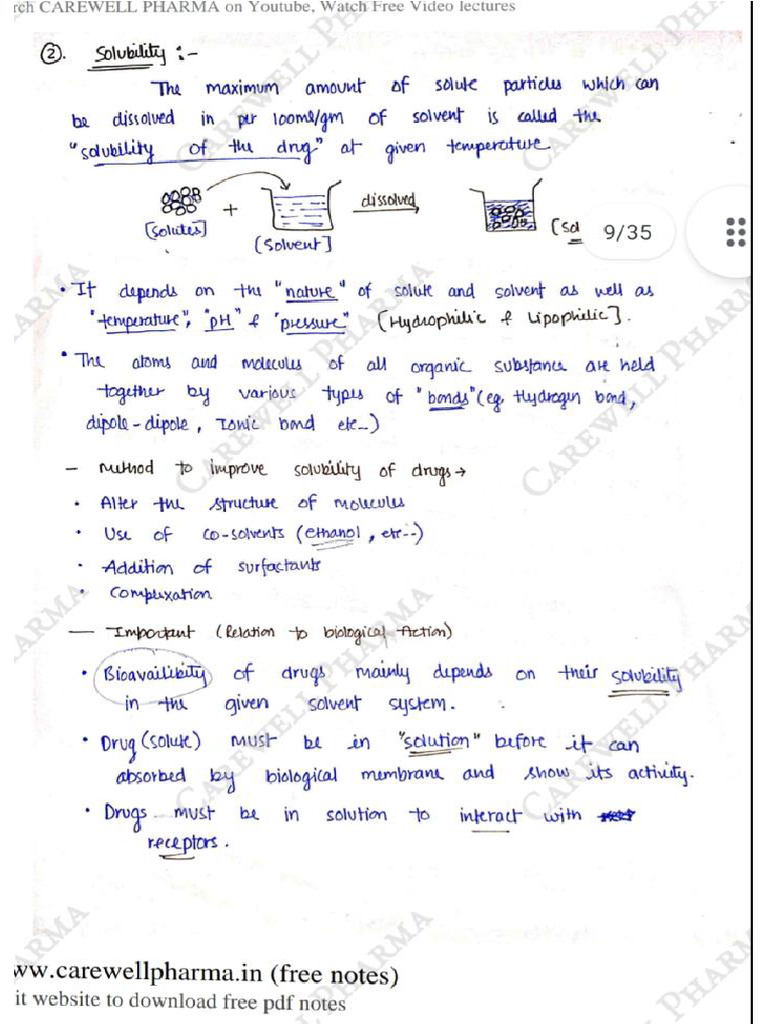 rch CAREWELL PHARMA on Youtube, Watch Free Video lectures
②. Solubility :-
The maximum amount of solute particles which can
be dissolved in per 100ml/gm of solvent is called the
"solubility of the drug" at given temperature.
[Solutes] + [Solvent] dissolved (Sol
9/35
• It depends on the "nature" of solute and solvent as well as
"temperature", "pH" & "pressure" [Hydrophilic & Lipophilic].
• The atoms and molecules of all organic substance are held
together by various types of "bonds" (eg. Hydrogen bond,
dipole-dipole, Ionic bond etc--)
- Method to improve solubility of drugs →
• Alter the structure of molecules
• Use of co-solvents (ethanol, etc--)
• Addition of surfactants
• Complexation
— Important (Relation to biological Action)
• Bioavailibity of drugs mainly depends on their solubility
in the given solvent system.
• Drug (solute) must be in "solution" before it can
absorbed by biological membrane and show its activity.
• Drugs must be in solution to interact with
receptors.
ww.carewellpharma.in (free notes)
it website to download free pdf notes
CAREWELL PHARMA